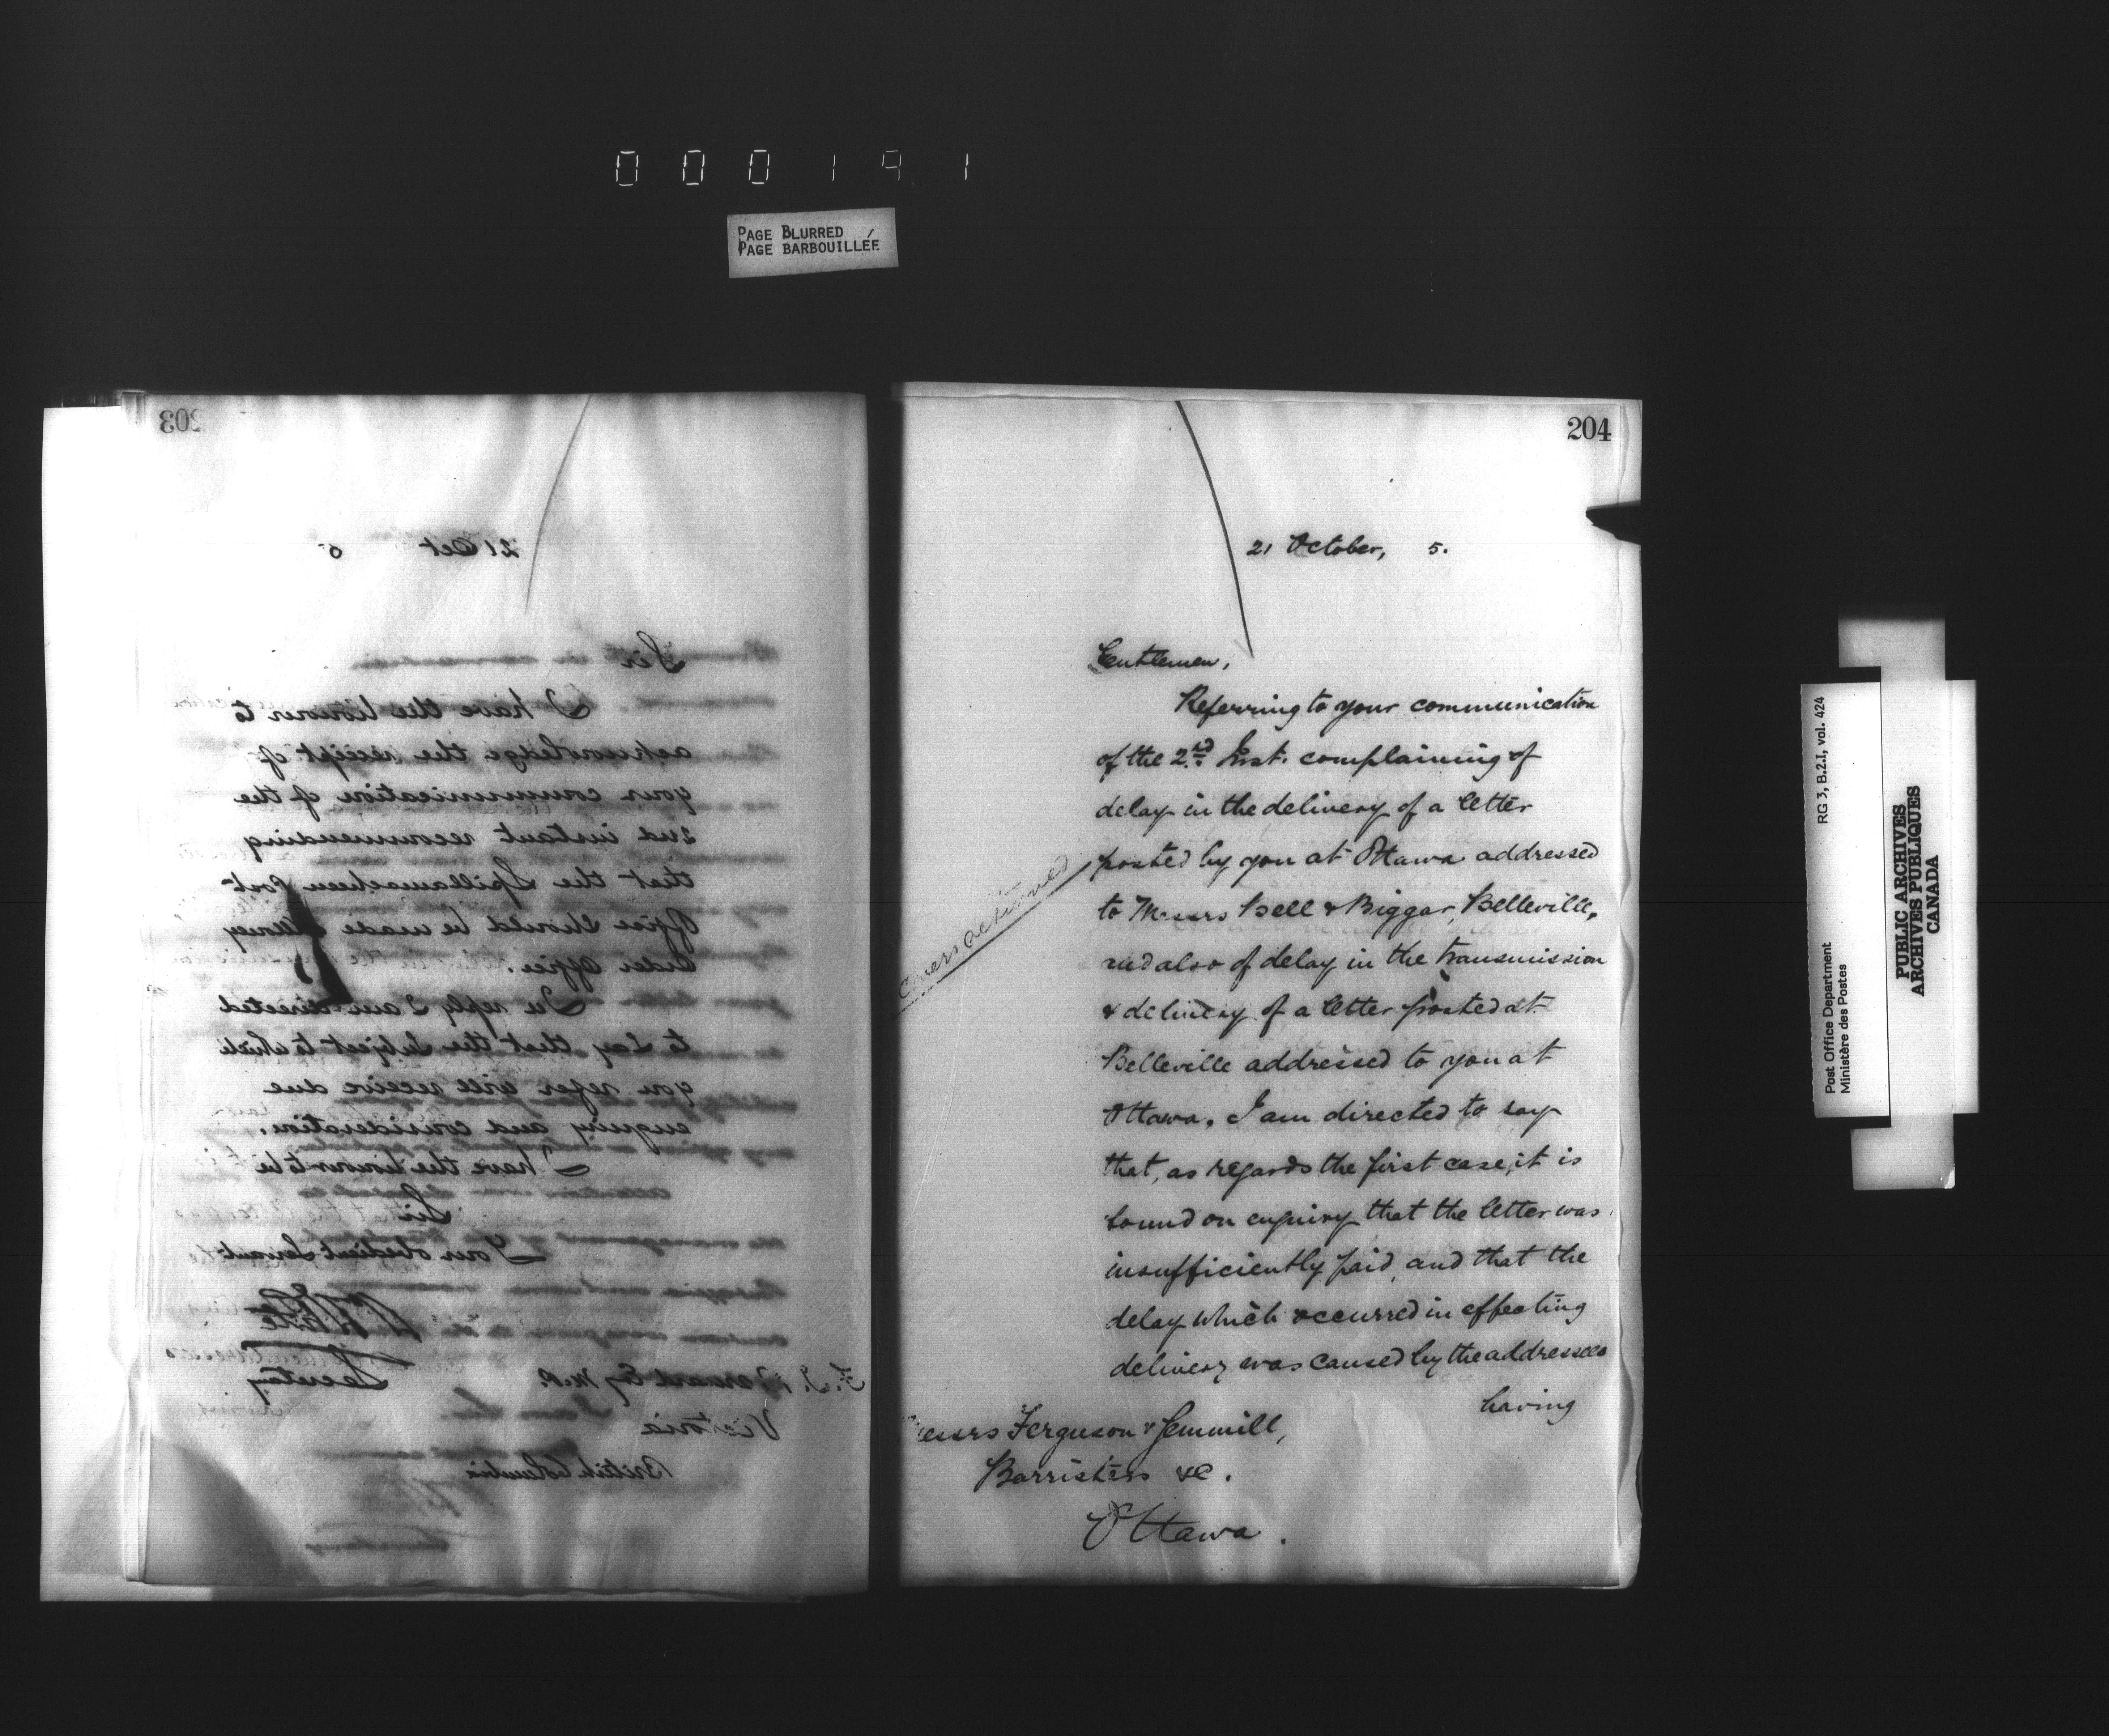 000191
PAGE BLURRED
PAGE BARBOUILLÉE
203
21 Oct 5
Sir
I have the honour to
acknowledge the receipt of
your communication of the
2nd instant recommending
that the Spillamacheen Post
Office should be made a Money
Order Office.
In reply I am directed
to say that the subject to which
you refer will receive due
enquiry and consideration.
I have the honour to be
Sir
Your obedient Servant
Wm White
Secretary
F. J. Barnard Esq M.P.
Victoria
British Columbia
204
21 October, 5.
Gentlemen,
Referring to your communication
of the 2nd Inst. complaining of
delay in the delivery of a letter
posted by you at Ottawa addressed
to Messrs Bell & Biggar, Belleville,
and also of delay in the transmission
& delivery of a letter posted at
Belleville addressed to you at
Ottawa. I am directed to say
that, as regards the first case, it is
found on enquiry that the letter was
insufficiently paid, and that the
delay which occurred in effecting
delivery was caused by the addressees
having
Covers returned
Messrs Ferguson & Gemmill,
Barristers &c.
Ottawa.
RG 3, B.2.I, vol. 424
Post Office Department
Ministère des Postes
PUBLIC ARCHIVES
ARCHIVES PUBLIQUES
CANADA